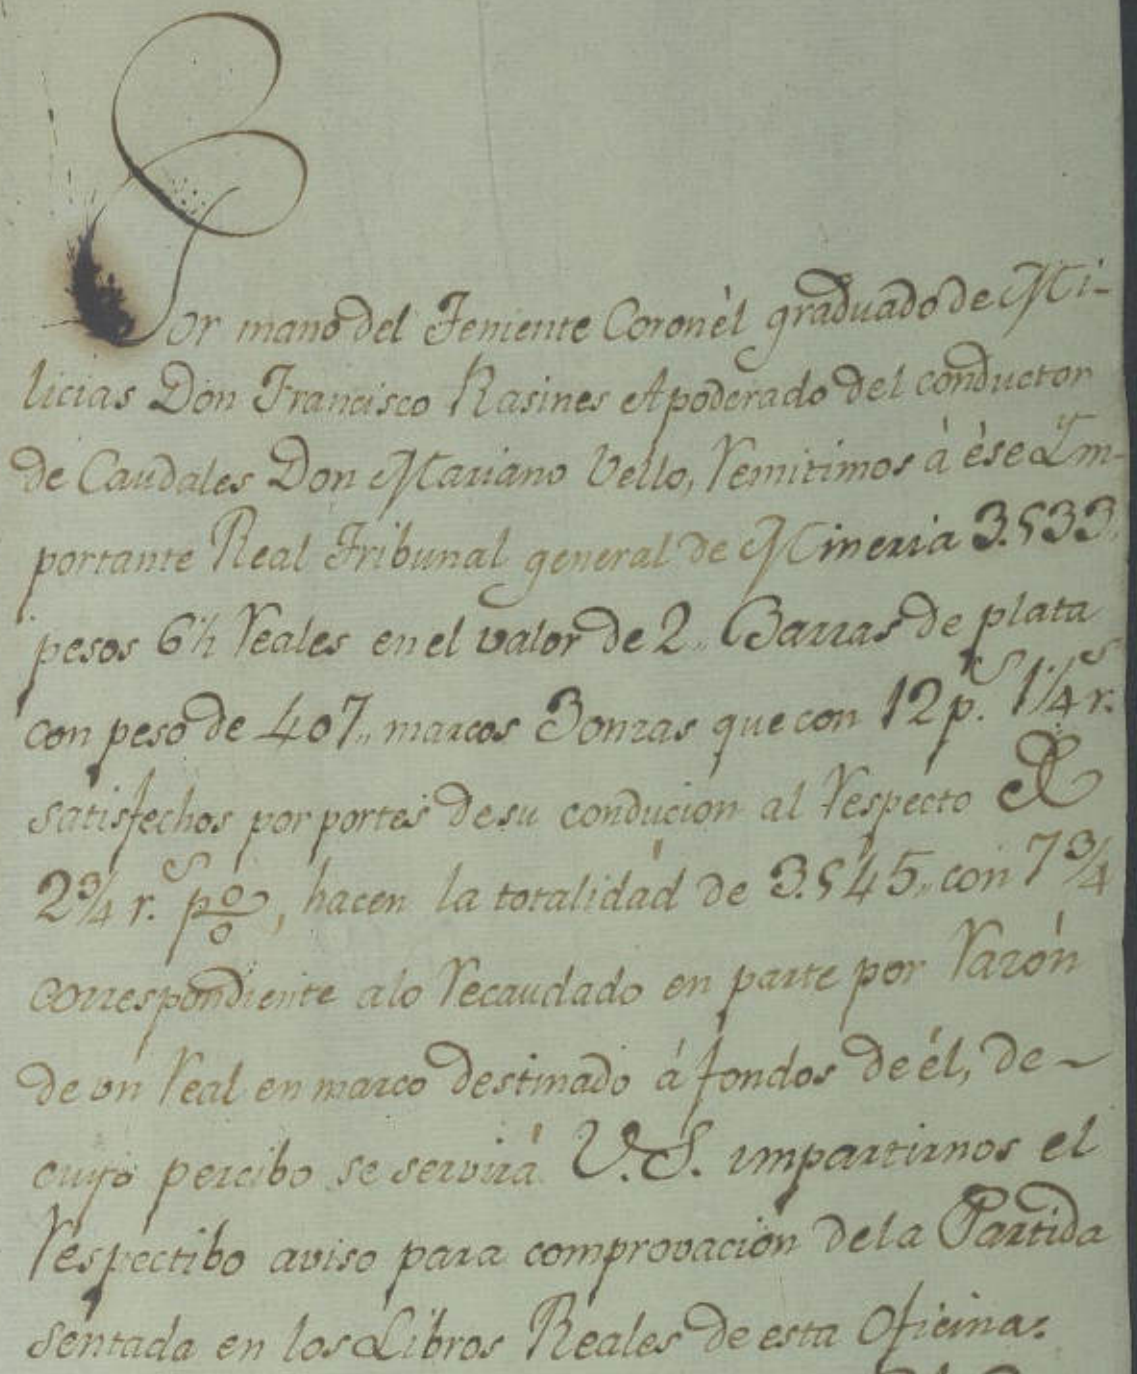 Por mano del Teniente Coronèl graduado de Mi-
licias Don Francisco Rasines Apoderado del conductor
de Caudales Don Mariano Vello, remitimos à èse Im-
portante Real Tribunal general de Mineria 3.533,,
pesos 6½ reales en el valor de 2,, Barras de plata
con peso de 407,, marcos 3 onzas que con 12 p.s 1¼ r.s
satisfechos por portes de su conducion al respecto de
2¾ r.s p%, hacen la totalidad de 3.545,, con 7¾
correspondiente a lo recaudado en parte por razón
de un real en marco destinado á fondos de él, de
cuyo percibo se servirá V.S. impartirnos el
respectibo aviso para comprovacion de la Partida
sentada en los Libros Reales de esta Oficina.